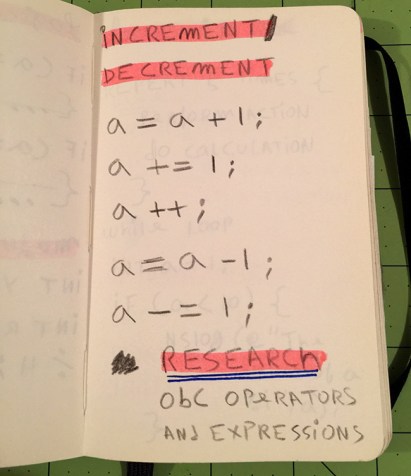 INCREMENT/
DECREMENT
a = a + 1;
a += 1;
a ++;
a = a - 1;
a -= 1;
RESEARCH
ObC OPERATORS
AND EXPRESSIONS